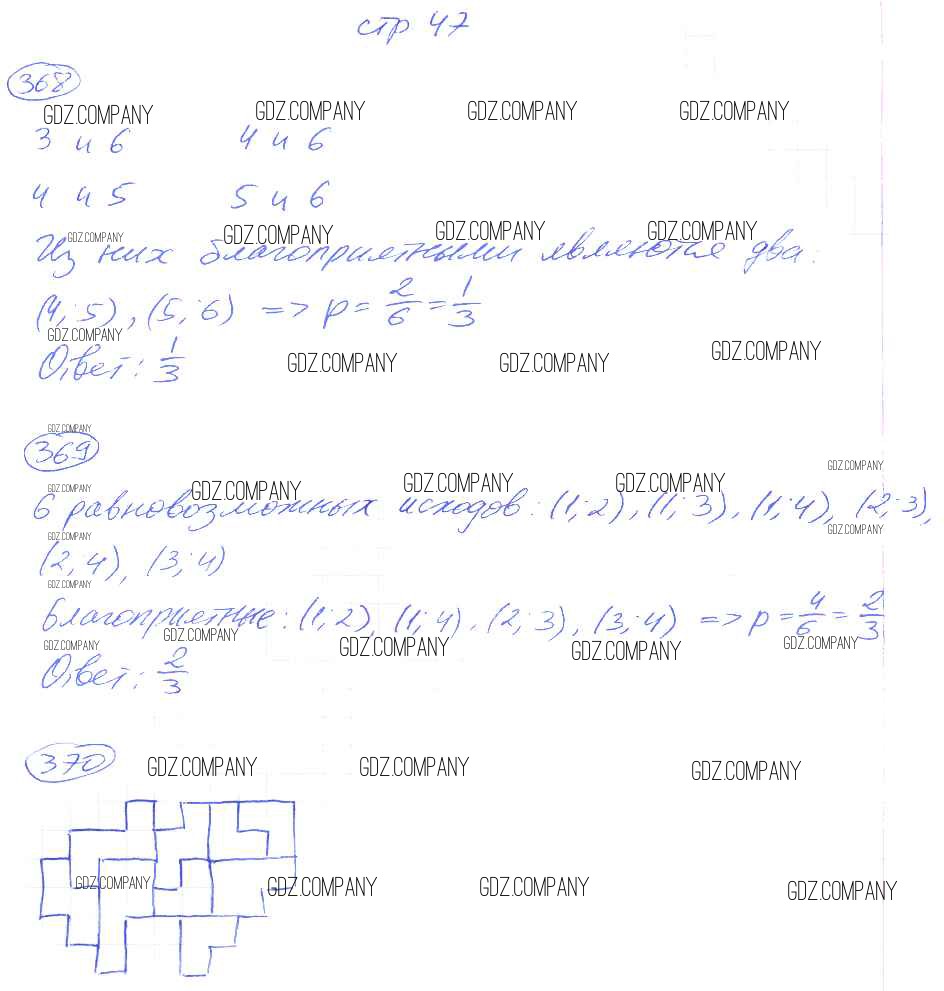 стр 47
368
GDZ.COMPANY GDZ.COMPANY GDZ.COMPANY GDZ.COMPANY
3 и 6 4 и 6
4 и 5 5 и 6
GDZ.COMPANY GDZ.COMPANY GDZ.COMPANY GDZ.COMPANY
Из них благоприятными являются два:
(4; 5), (5; 6) => p = 2/6 = 1/3
GDZ.COMPANY
Ответ: 1/3
GDZ.COMPANY GDZ.COMPANY GDZ.COMPANY
GDZ.COMPANY
369
GDZ.COMPANY
GDZ.COMPANY GDZ.COMPANY GDZ.COMPANY GDZ.COMPANY
6 равновозможных исходов: (1; 2), (1; 3), (1; 4), (2; 3),
GDZ.COMPANY GDZ.COMPANY
(2, 4), (3; 4)
GDZ.COMPANY
Благоприятные: (1; 2), (1; 4), (2; 3), (3; 4) => p = 4/6 = 2/3
GDZ.COMPANY GDZ.COMPANY GDZ.COMPANY GDZ.COMPANY GDZ.COMPANY
Ответ: 2/3
370
GDZ.COMPANY GDZ.COMPANY GDZ.COMPANY
GDZ.COMPANY GDZ.COMPANY GDZ.COMPANY GDZ.COMPANY